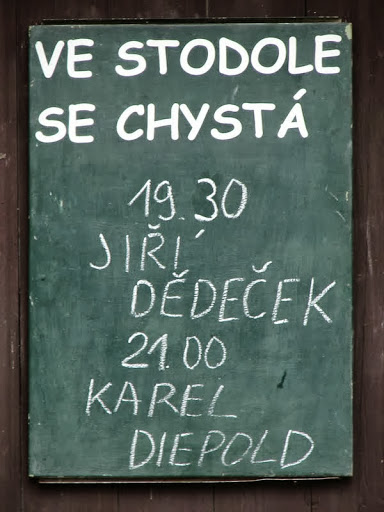 VE STODOLE
SE CHYSTÁ
19.30
JIŘÍ
DĚDEČEK
21.00
KAREL
DIEPOLD